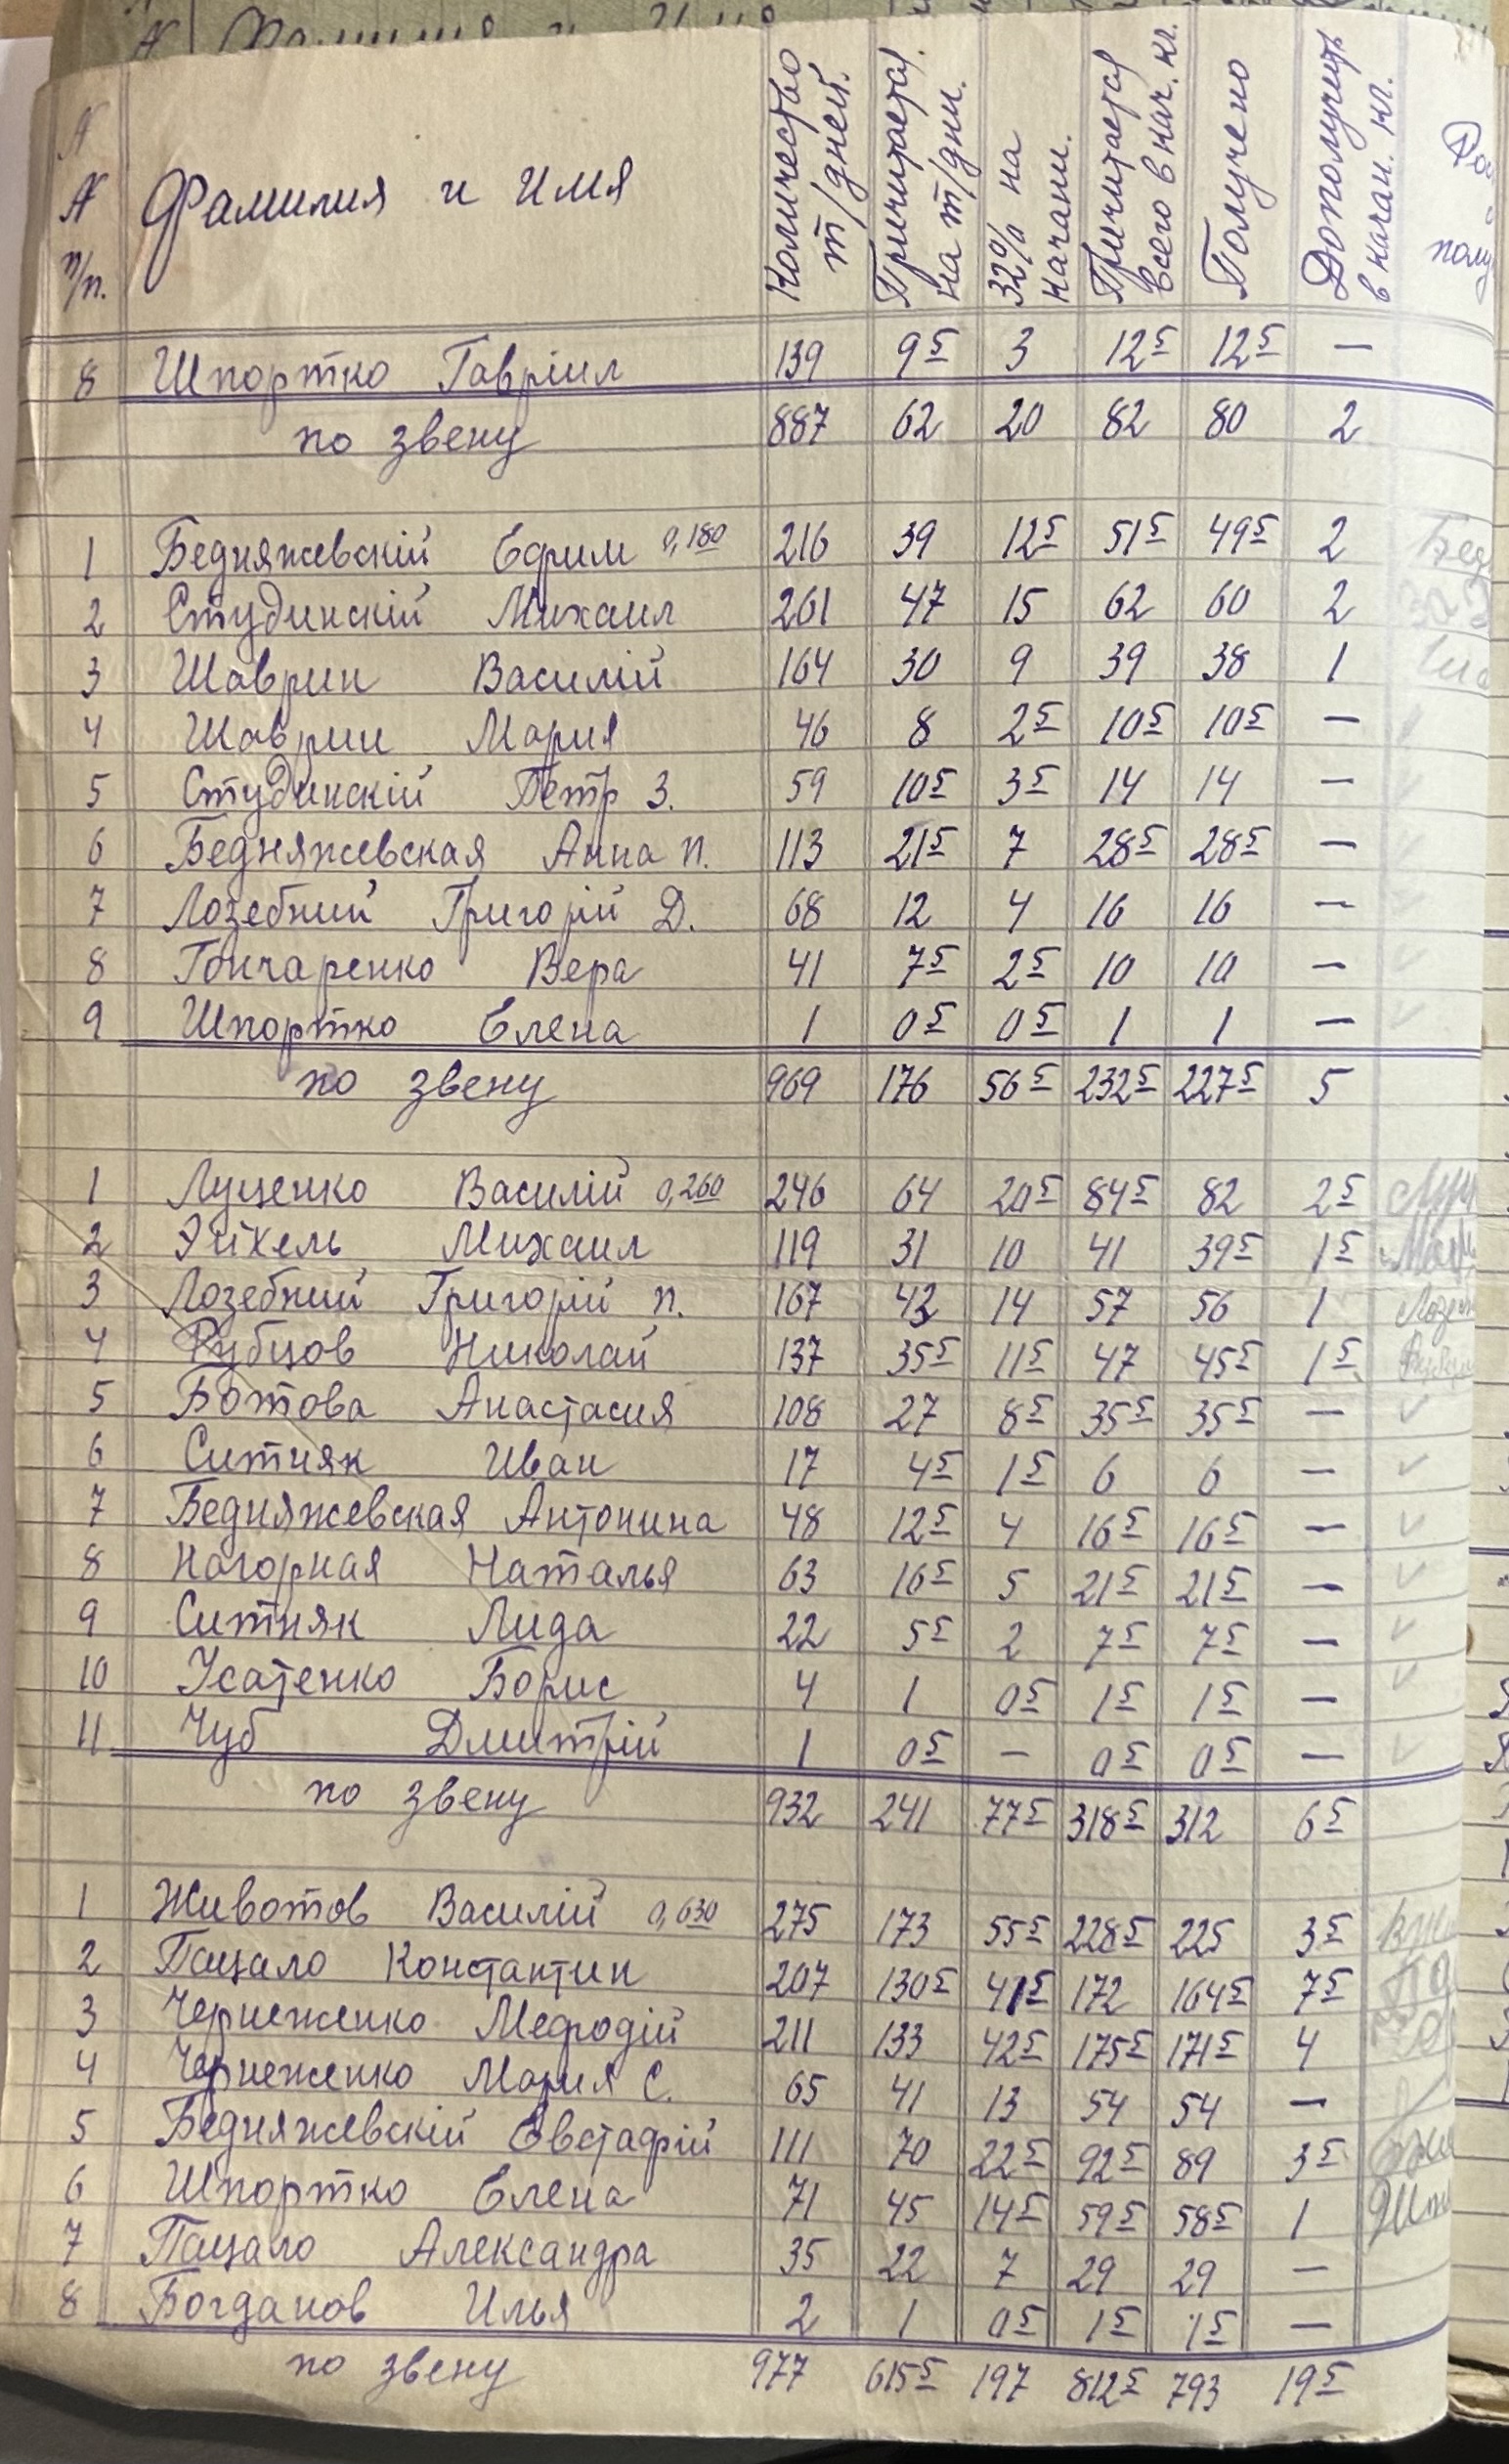 N
N п/п. Фамилия и Имя Количество т/дней. Причитаетса. на т/дни. 32% на качани. Причитаетса всего в кач. кг. Получено Дополучить в качан. кг.
8 Шпортко Гавріил 139 9 5 3 12 5 12 5 —
по звену 887 62 20 82 80 2
1 Бедняжевскій Ефрим 0,180 216 39 12 5 51 5 49 5 2
2 Студинскій Михаил 261 47 15 62 60 2
3 Шаврин Василій 164 30 9 39 38 1
4 Шаврин Мария 46 8 2 5 10 5 10 5 —
5 Студинскій Петр З. 59 10 5 3 5 14 14 —
6 Бедняжевская Анна П. 113 21 5 7 28 5 28 5 —
7 Лозебний Григорій Д. 68 12 4 16 16 —
8 Гончаренко Вера 41 7 5 2 5 10 10 —
9 Шпортко Елена 1 0 5 0 5 1 1 —
по звену 969 176 56 5 232 5 227 5 5
1 Луценко Василій 0,260 246 64 20 5 84 5 82 2 5
2 Эйхель Михаил 119 31 10 41 39 5 1 5
3 Лозебний Григорій П. 167 43 14 57 56 1
4 Рубцов Николай 137 35 5 11 5 47 45 5 1 5
5 Ботова Анастасия 108 27 8 5 35 5 35 5 —
6 Ситняк Иван 17 4 5 1 5 6 6 —
7 Бедняжевская Антонина 48 12 5 4 16 5 16 5 —
8 Нагорная Наталья 63 16 5 5 21 5 21 5 —
9 Ситняк Лида 22 5 5 2 7 5 7 5 —
10 Усатенко Борис 4 1 0 5 1 5 1 5 —
11 Чуб Дмитрій 1 0 5 — 0 5 0 5 —
по звену 932 241 77 5 318 5 312 6 5
1 Животов Василій 0,630 275 173 55 5 228 5 225 3 5
2 Пацало Константин 207 130 5 41 5 172 164 5 7 5
3 Чернеженко Мефодій 211 133 42 5 175 5 171 5 4
4 Чернеженко Мария С. 65 41 13 54 54 —
5 Бедняжевскій Евстафій 111 70 22 5 92 5 89 3 5
6 Шпортко Елена 71 45 14 5 59 5 58 5 1
7 Пацало Александра 35 22 7 29 29 —
8 Богданов Илья 2 1 0 5 1 5 1 5 —
по звену 977 615 5 197 812 5 793 19 5